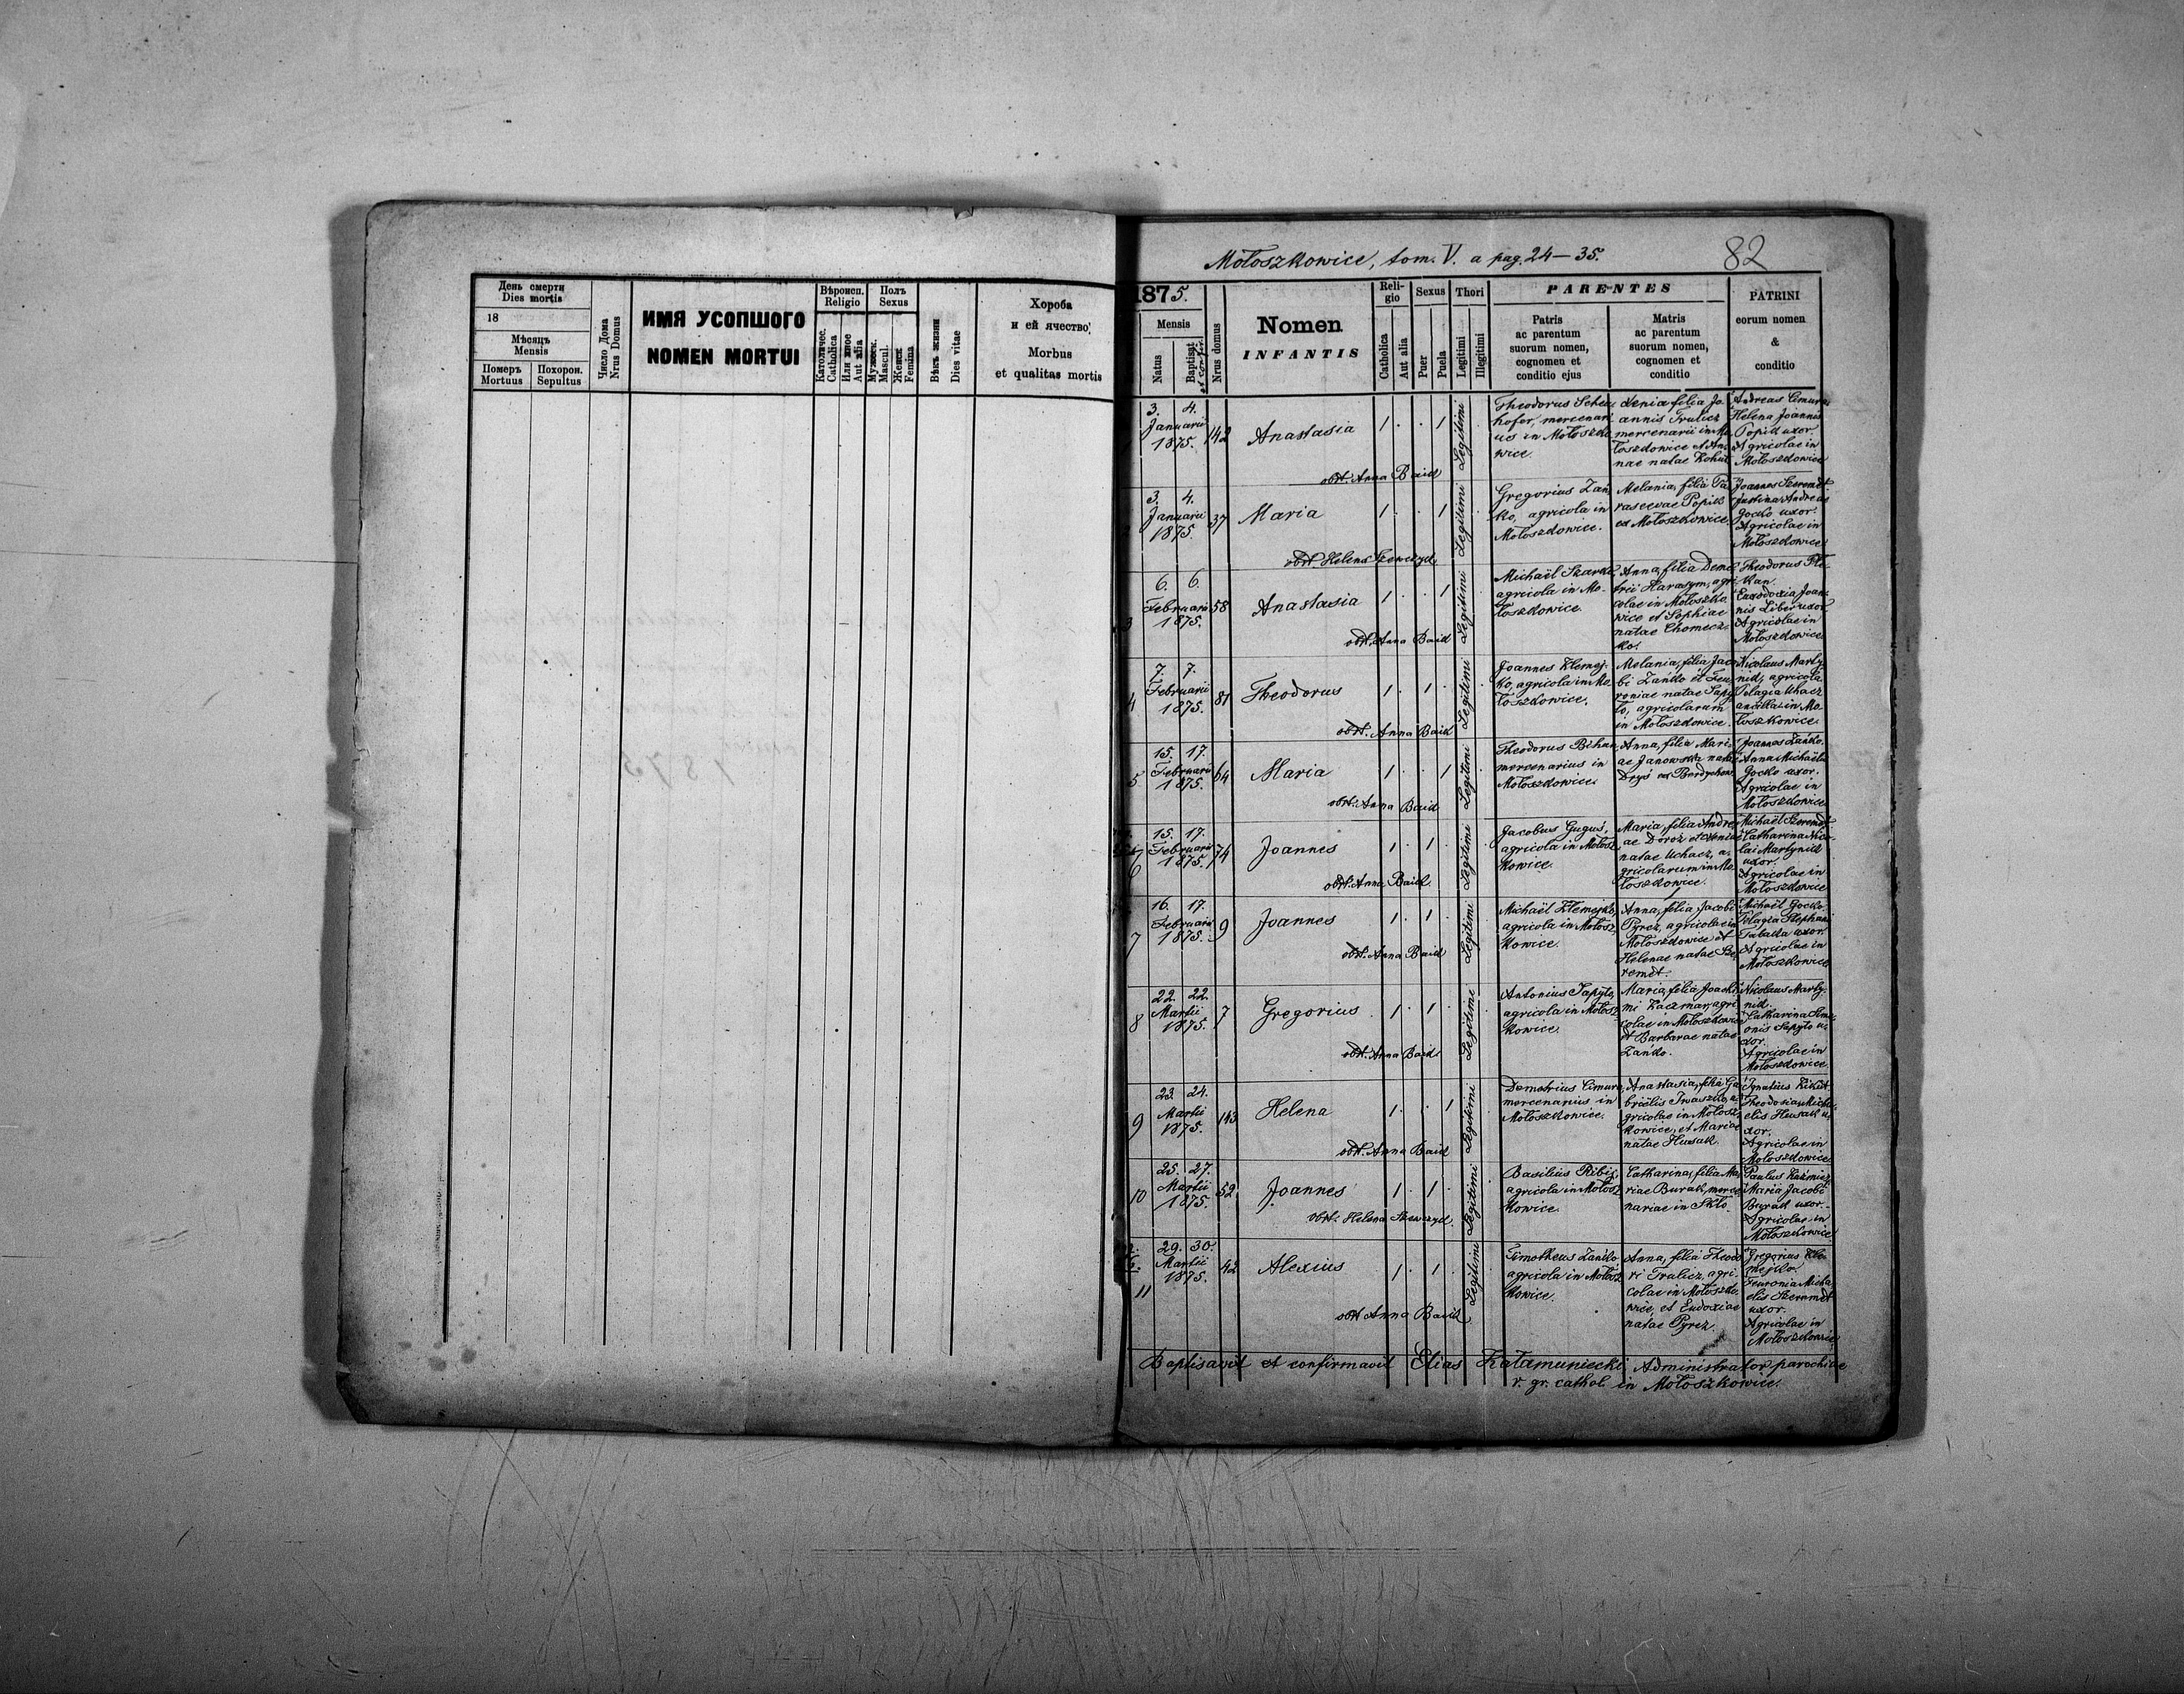 День смерти
Dies mortis
18
Мѣсяцъ
Mensis
Померъ
Mortuus
Похорон.
Sepultus
Число Дома
Nrus Domus
ИМЯ УСОПШОГО
NOMEN MORTUI
Вѣроисп.
Religio
Католичес.
Catholica
Или иное
Aut alia
Полъ
Sexus
Мужеск.
Mascul.
Женск.
Femina
Вѣкъ жизни
Dies vitae
Хороба
и ей ячество
Morbus
et qualitas mortis
Mołoszkowice, tom. V. a pag. 24—35.
82
1875.
Mensis
Natus
Baptisat
et confir.
Nrus domus
Nomen
INFANTIS
Reli-
gio
Catholica
Aut alia
Sexus
Puer
Puela
Thori
Legitimi
Illegitimi
PARENTES
Patris
ac parentum
suorum nomen,
cognomen et
conditio ejus
Matris
ac parentum
suorum nomen,
cognomen et
conditio
PATRINI
eorum nomen
&
conditio
3. 4.
Januarii
1875.
142
Anastasia
1 . . 1 .
Legitimi
Theodorus
hofer, mercenari
us in Mołoszko
wice.
Xenia filia Jo
annis Trulicz
mercenarii in Mo
łoszkowice et An
nae natae Kohut
Andreas Cimura
Helena Joannis
Popik uxor
Agricolae in
Mołoszkowice
obst. Anna Baid
2
3. 4.
Januarii
1875.
37
Maria
1 . . 1 .
Legitimi
Gregorius Zań
ko, agricola in
Mołoszkowice.
Melania, filia Pa
rascevae Popik
ex Mołoszkowice
Joannes Szeremet
Justina Andreae
Gocko uxor.
Agricolae in
Mołoszkowice
obst. Helena Szewczyk
3
6. 6.
Februarii
1875.
58
Anastasia
1 . . 1 .
Legitimi
Michaël Skarko
agricola in Mo-
łoszkowice.
Anna, filia Deme
trii Harasym, agri
colae in Mołoszko
wice et Sophiae
natae Chomecz
ko.
Theodorus
kan.
Eudoxia Joan
nis Liber uxor
Agricolae in
Mołoszkowice
obst. Anna Baid
4
7. 7.
Februarii
1875.
81
Theodorus
1 . 1 .
Legitimi
Joannes Klemej-
ko, agricola in Mo
łoszkowice.
Melania, filia Jaco
bi Zańko et Feu
roniae natae Sapy
to, agricolarum
in Mołoszkowice.
Nicolaus Marty
niuk, agricola
Pelagia Uhacz
ancilla in Mo
łoszkowice.
obst. Anna Baid
5
15. 17.
Februarii
1875.
64
Maria
1 . . 1
Legitimi
Theodorus Bihun
mercenarius in
Mołoszkowice.
Anna, filia Mari
ae Janowska natae
Dryś ex Berdychow
Joannes Zańko.
Anna Michaëlis
Gocko uxor.
Agricolae in
Mołoszkowice
obst. Anna Baid
6
15. 17.
Februarii
1875.
74
Joannes
1 . 1 .
Legitimi
Jacobus Guguś,
agricola in Mołosz
kowice.
Maria, filia Andre
ae Dorosz et Xeniae
natae Uchacz, a-
gricolarum in Mo
łoszkowice.
Michaël Szeremet
Catharina Nico
lai Martyniuk
uxor.
Agricolae in
Mołoszkowice
obst. Anna Baid
7
16. 17.
Februarii
1875.
9
Joannes
1 . 1 .
Legitimi
Michaël Klemejko
agricola in Mołosz
kowice.
Anna, filia Jacobi
Pyrez, agricolae in
Mołoszkowice et
Helenae natae Sze
remet.
Michaël Gocko.
Pelagia Stephani
Tabaka uxor
Agricolae in
Mołoszkowice
obst. Anna Baid
8
22. 22.
Martii
1875.
7
Gregorius
1 . 1 .
Legitimi
Antonius Sapyto,
agricola in Mołosz
kowice.
Maria, filia Joachi
mi Kaczmar, agri
colae in Mołoszkowice
et Barbarae natae
Zańko.
Nicolaus Marty
niuk.
Catharina Sime
onis Sapyto u-
xor.
Agricolae in
Mołoszkowice
obst. Anna Baid
9
23. 24.
Martii
1875.
143
Helena
1 . . 1
Legitimi
Demetrius Cimura
mercenarius in
Mołoszkowice.
Anastasia, filia Ga
brielis Iwaszko, a
gricolae in Mołosz
kowice, et Mariae
natae Husak.
Ignatius Kikot
Theodosia Micha
elis Husak u-
xor.
Agricolae in
Mołoszkowice
obst. Anna Baid
10
25. 27.
Martii
1875.
52
Joannes
1 . 1 .
Legitimi
Basilius Ribij,
agricola in Mołosz
kowice.
Catharina, filia Ma
riae Burak, merce
nariae in Skło.
Paulus
Maria Jacobi
Burak uxor.
Agricolae in
Mołoszkowice
obst. Helena Szewczyk
11
29. 30.
Martii
1875.
42
Alexius
1 . 1 .
Legitimi
Timotheus Zańko
agricola in Mołosz
kowice.
Anna, filia Theodo
ri Trulicz, agri
colae in Mołoszko
wice, et Eudoxiae
natae Pyrez.
Gregorius Kle
mejko.
Feuronia Micha
elis Szeremet
uxor.
Agricolae in
Mołoszkowice
obst. Anna Baid
Baptisavit et confirmavit Elias Kałamuniecki Administrator parochiae
r. gr. cathol. in Mołoszkowice.